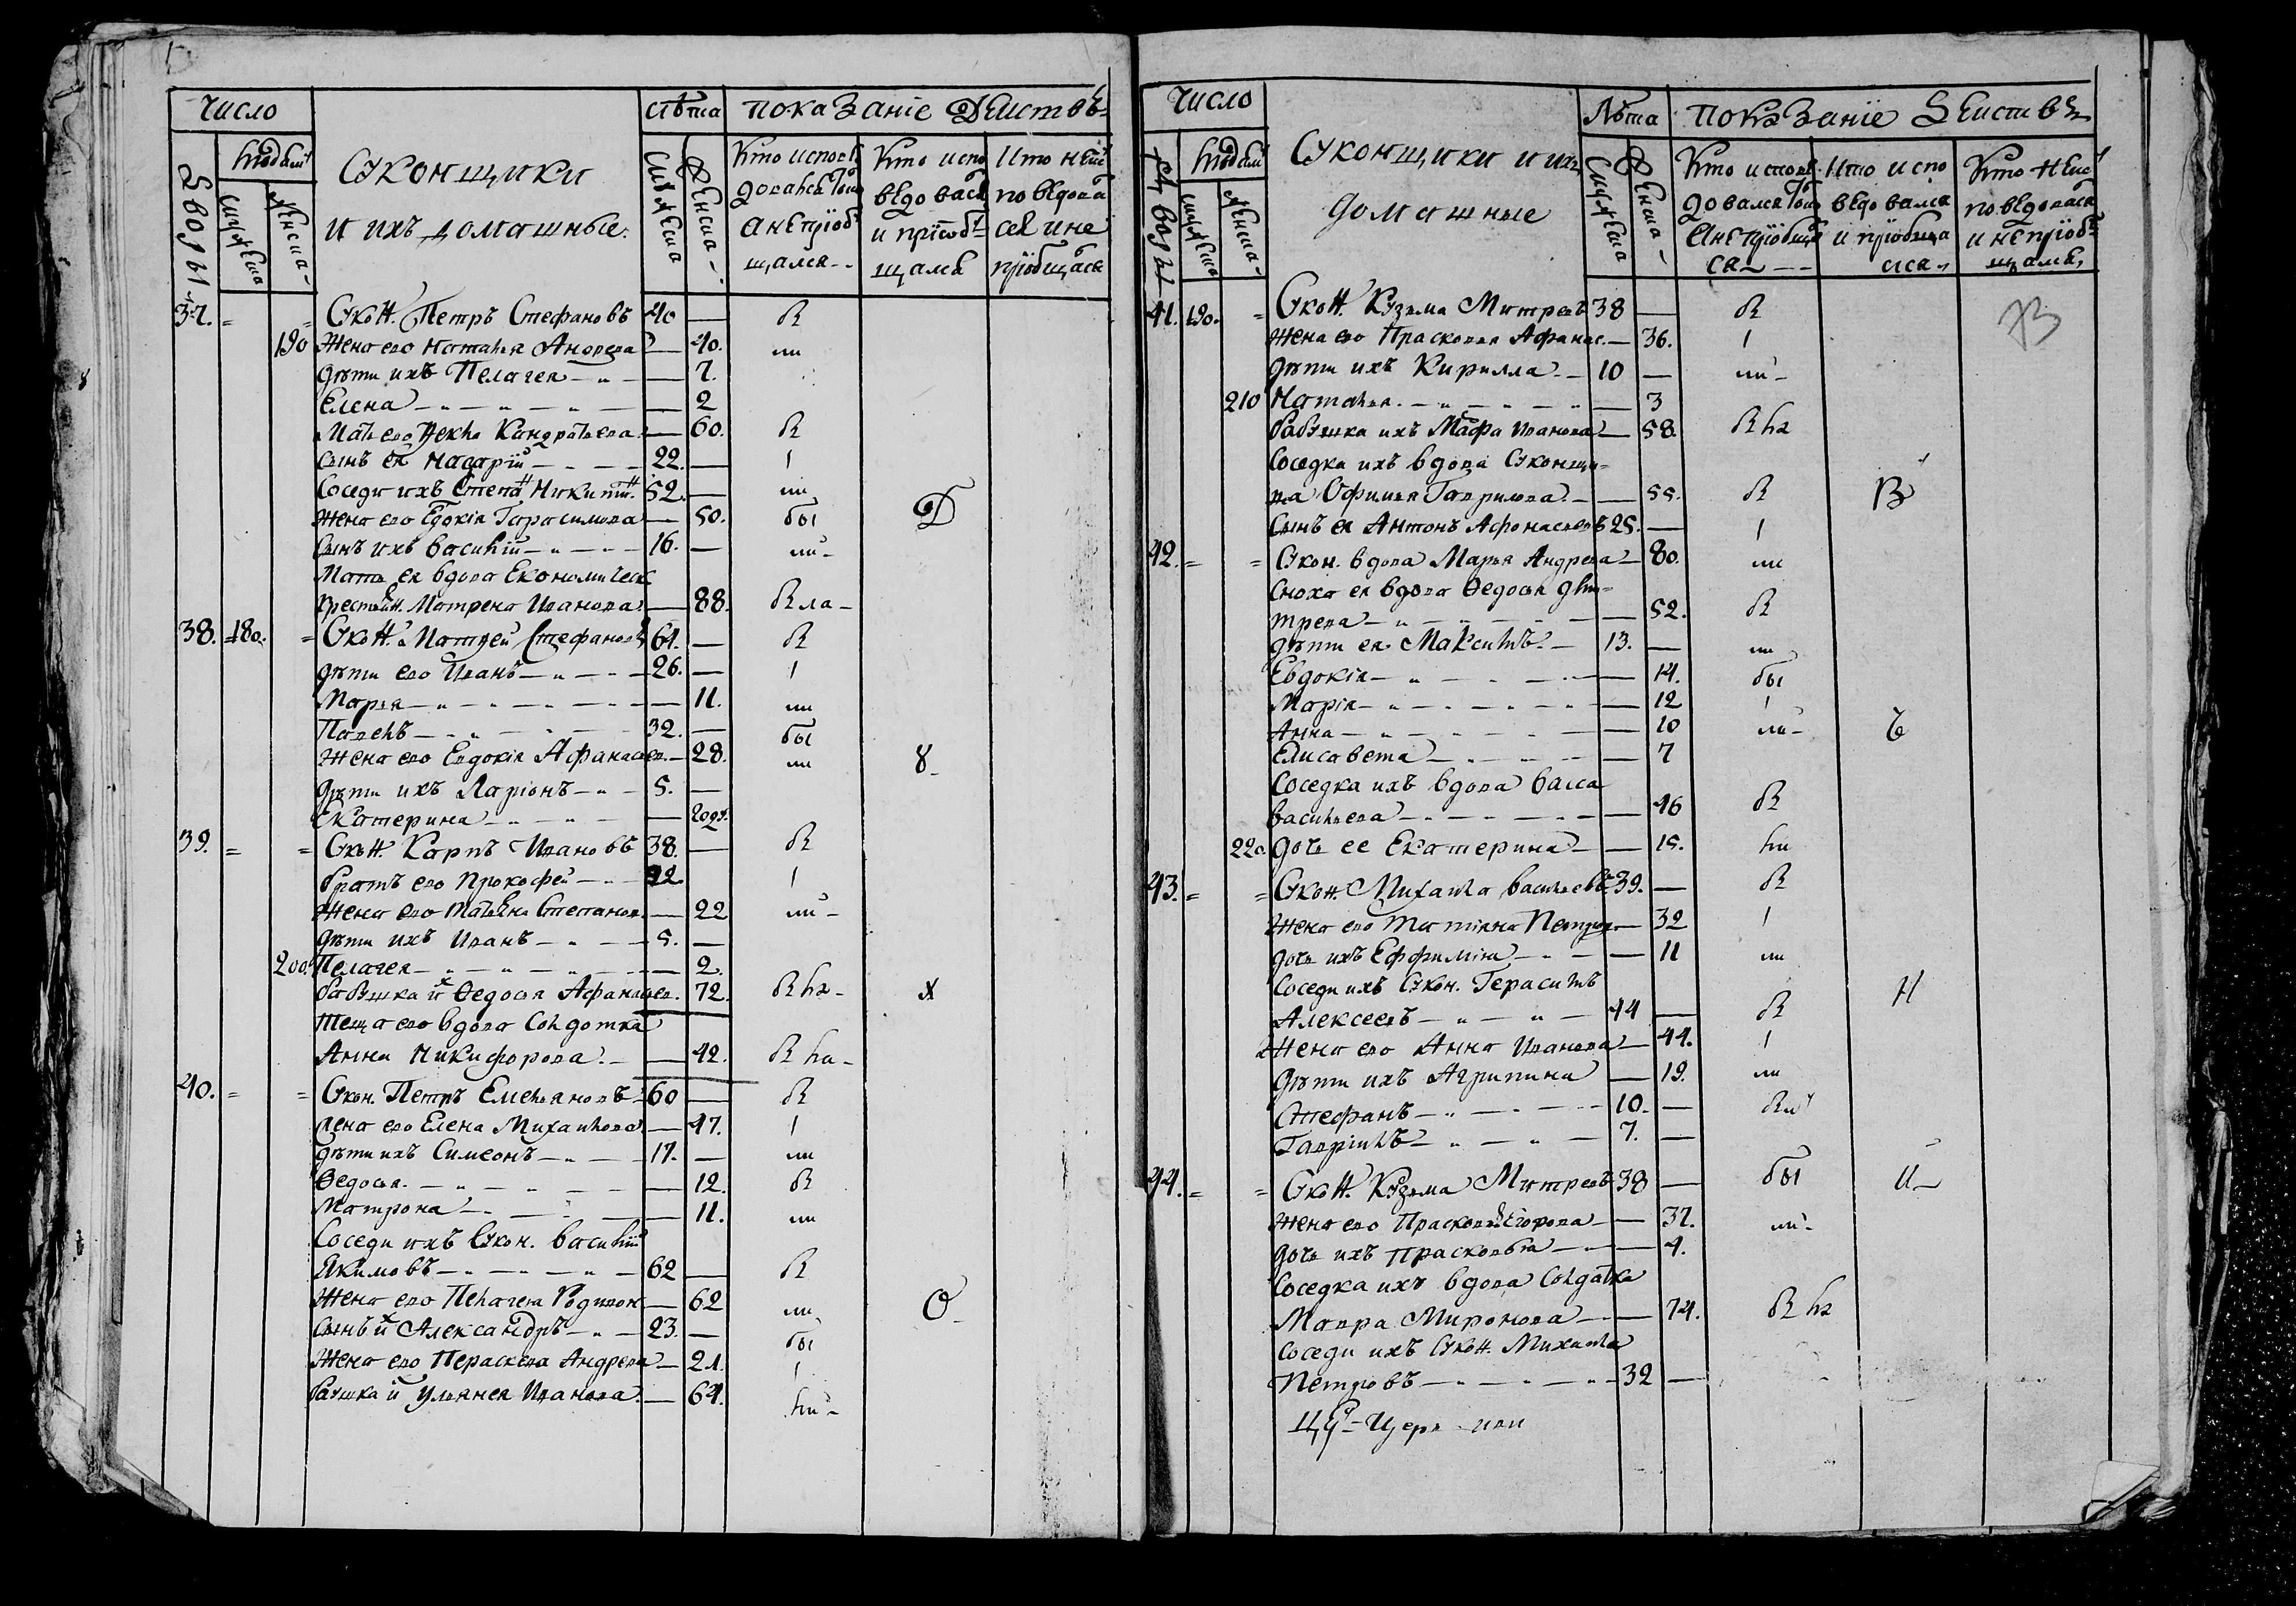 Число
Дворы
Людей
Мужеска
Женска
Суконщики
и ихъ домашные.
Лѣта
Мужеска
Женска
показаніе Действъ
Кто испове
довался токмо
а непріоб
щался
Кто испо
ведовался
и пріоб
щался
Кто неис
поведова
ся и не
пріобщася
37. Сукон. Петръ Стефановъ 40 — В
190 Жена его Наталья Андреева — 40. ли
дѣти ихъ Пелагея — 7.
Елена — 2
Мать его Фекла Кандратьева — 60. В
сынъ ея Назарій 22. — 1
Соседи ихъ Степан Никитин. 52. — ли
Жена его Евдокія Гарасимова — 50. бы Д
Сынъ ихъ Василій 16. — ли
Мать ея вдова Економическ
крестьян. Матрена Иванова — 88. В ла
38. 180. Сукон. Матвей Стефановъ 61. — В
дѣти его Иванъ 26. — 1
Марья — 11. ли
Павелъ 32. — бы
Жена его Евдокія Афанасьев. — 28. ли 8
Дѣти ихъ Ларіонъ 5. —
Екатерина — 2 году.
39. Сукон. Карпъ Ивановъ 38. — В
братъ его Прокофей 32. 1
Жена его Татьяна Степанов. — 22 ли
дѣти ихъ Иванъ 5. —
200. Пелагея — 2.
бабушка их Ѳедосья Афанасьев. 72. В ла
теща его вдова Солдатка
Анна Никифорова — 42. В ла
40. Сукон. Петръ Емельяновъ 60 — В
жена его Елена Михаилова — 47. 1
дѣти ихъ Симеонъ 17. — ли
Ѳедосья. — 12. В
Матрона — 11. ли
Соседи ихъ Сукон. Василій
Якимовъ 62 — В
Жена его Пелагея Родивон — 62 ли О
Сынъ их Александръ 23. — бы
Жена его Параскева Андреева — 21. 1
бабушка их Ульянея Иванова. — 64. ли
Число
Дворы
Людей
Мужеска
Женска
Суконщики и ихъ
домашные
Лѣта
Мужеска
Женска
показаніе Действъ
Кто испове
довался токмо
а непріобща
ся
Кто испо
ведовался
и пріобща
лся
Кто неис
поведовася
и непріоб
щался
41. 190. Сукон. Кузма Митревъ 38 — В
Жена его Прасковья Афанас. — 36. 1
дѣти ихъ Кирилла 10 — ли
210 Наталья. — 3
бабушка ихъ Марфа Иванова — 58. В ла
Соседка ихъ вдова Суконщи-
ка Офимья Гаврилова — 55. В В
Сынъ ея Антонъ Афонасьевъ 25. — 1
42. Сукон. вдова Марья Андреева — 80. ли
Сноха ея вдова Ѳедосья Дми-
трева — 52. В
дѣти ея Максимъ 13. — ли
Евдокія — 14. бы
Марія — 12 1
Анна — 10 ли
Елисавета — 7
Соседка ихъ вдова Васса
Васильева — 46 В
220. дочь ее Екатерина — 15. ли
43. Сукон. Михаила Васильевъ 39. — В
Жена его Татіяна Петров. — 32 1
дочь ихъ Еффимія — 11 ли
Соседи ихъ Сукон. Герасимъ
Алексеевъ 44 — В Н
Жена его Анна Иванова — 44. 1
Дѣти ихъ Агрипина — 19. ли
Стефанъ 10. — В
Гавріилъ 7. —
44. Сукон. Кузма Митревъ 38 — бы И
Жена его Прасковья Егорова — 37. ли
дочь ихъ Прасковья — 4.
Соседка ихъ вдова Солдатка
Мавра Миронова — 74. В ла
Соседи ихъ Сукон. Михаила
Петровъ 32 —